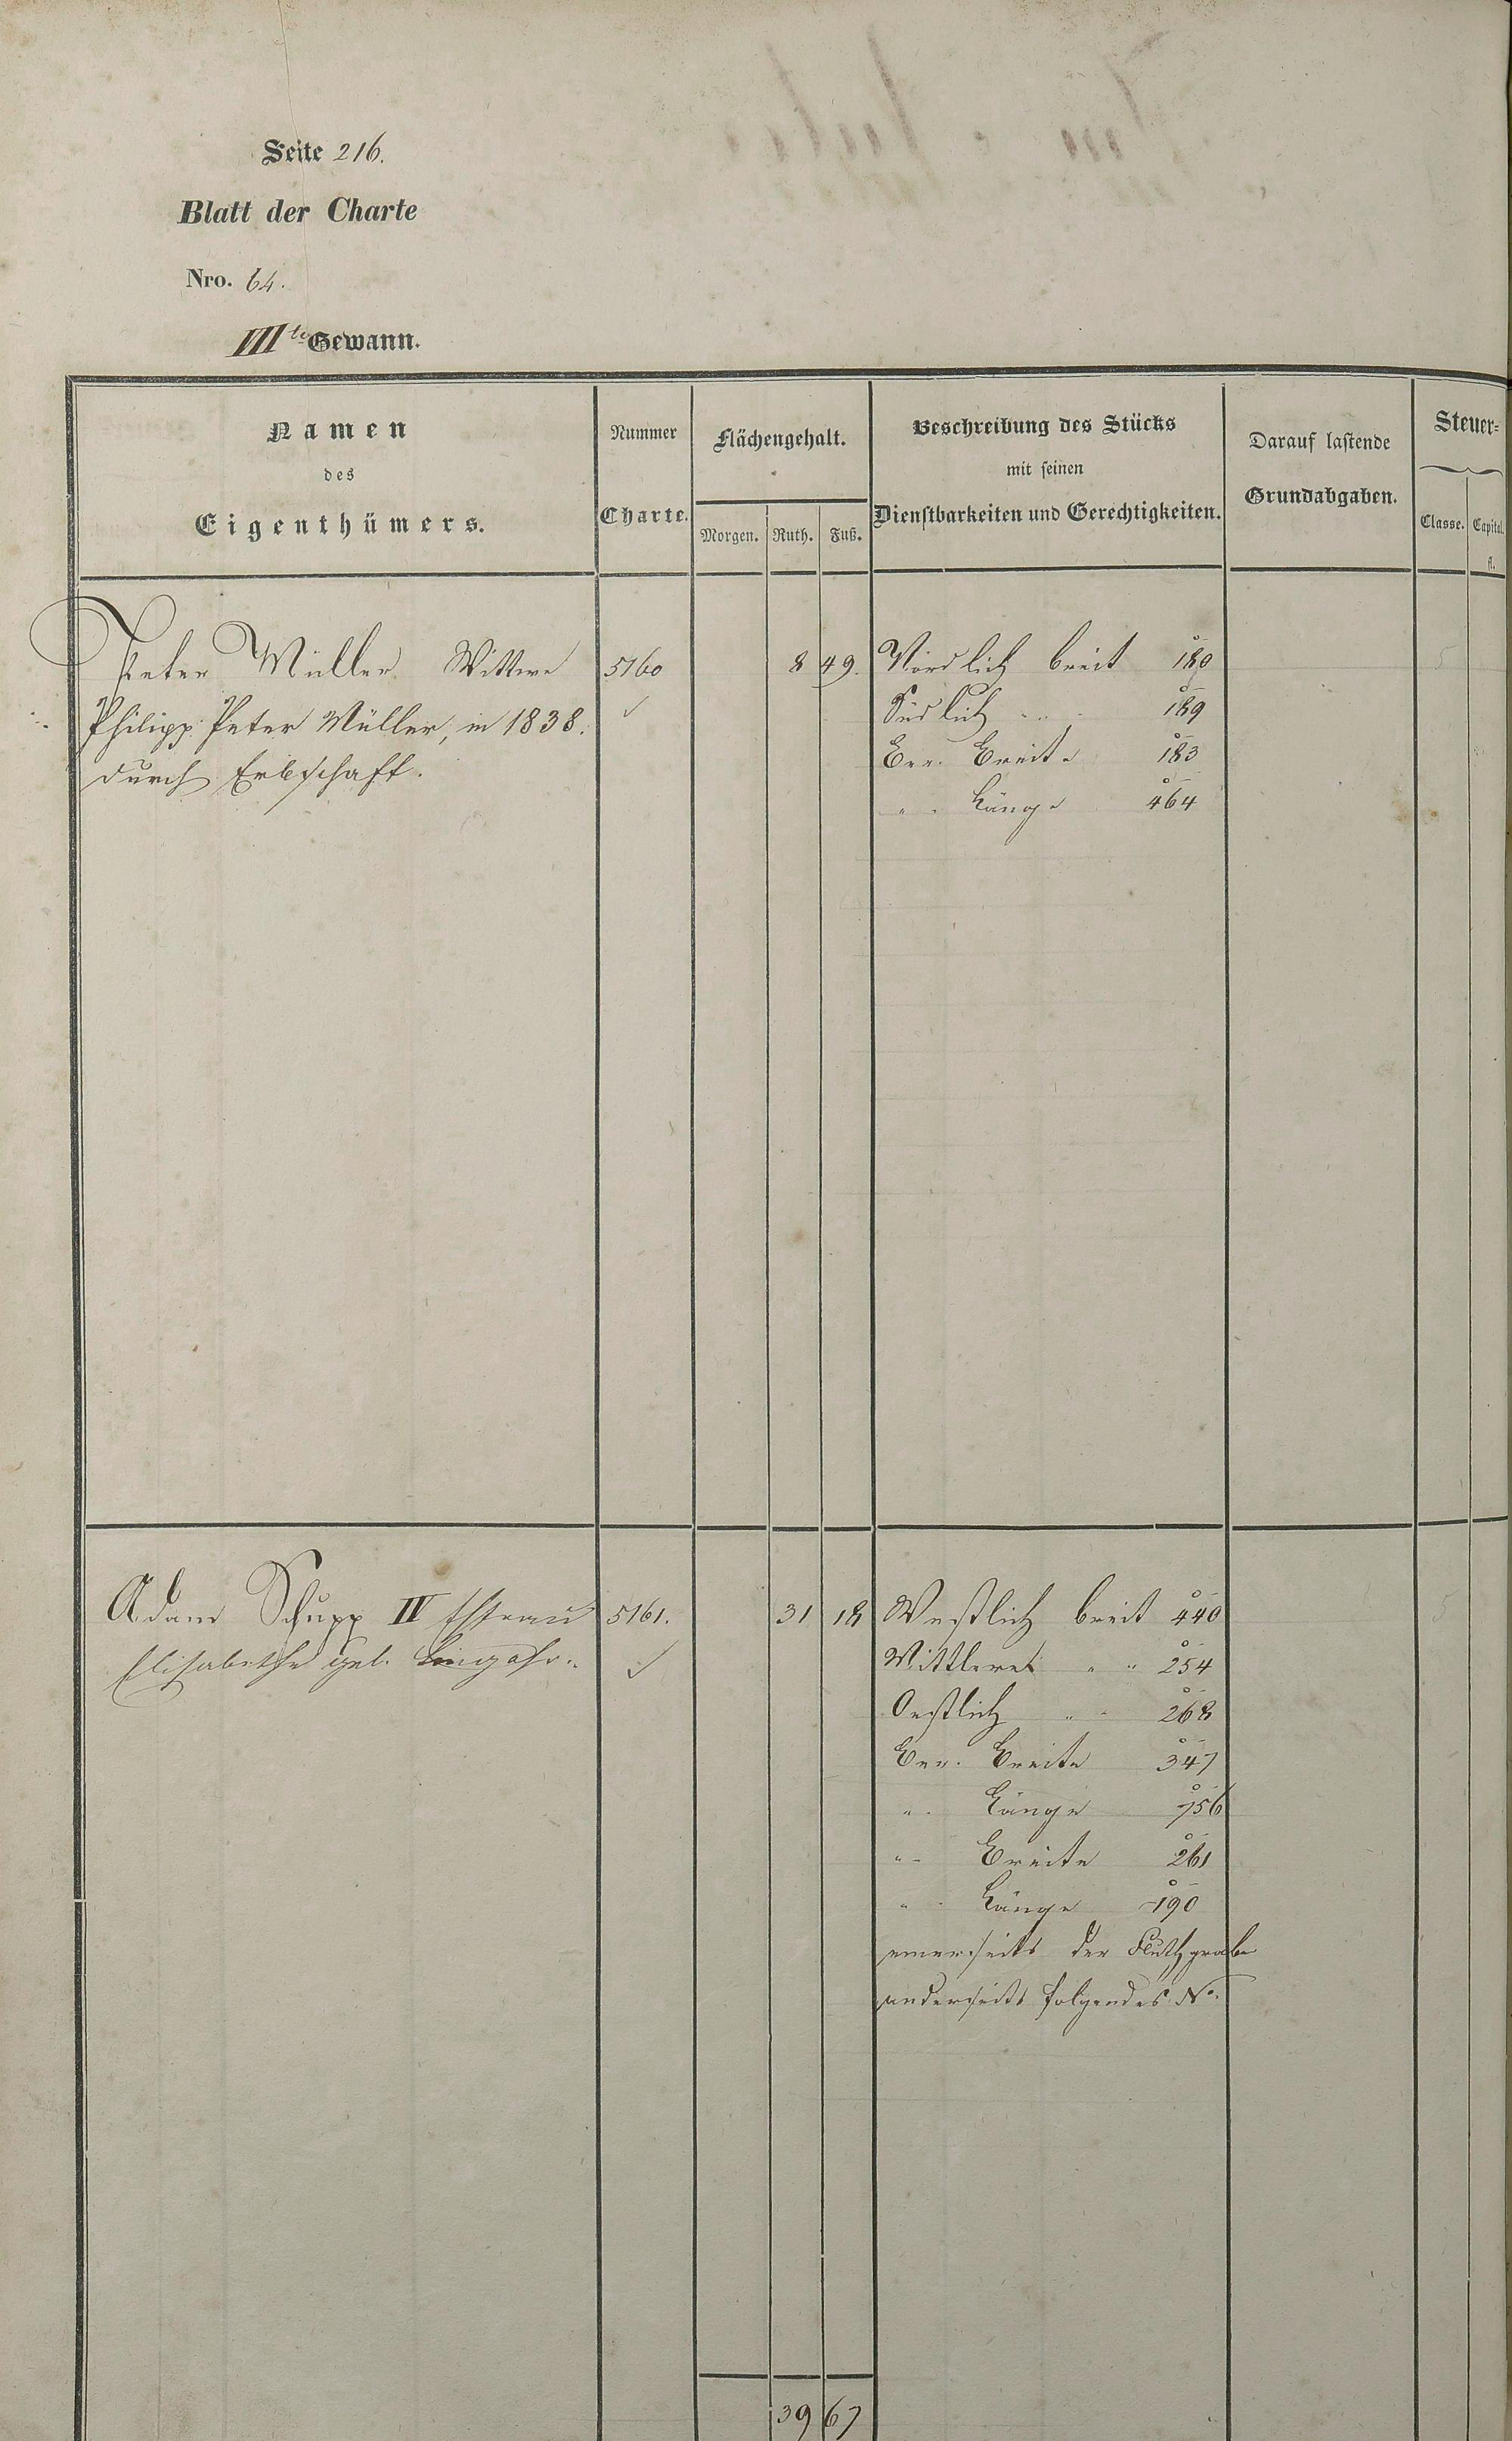 Seite 216.
Blatt der Charte
Nro. 64.
III te Gewann.
Namen
des
Eigenthümers.
Nummer
Charte.
Flächengehalt.
Morgen. Ruth. Fuß.
Beschreibung des Stücks
mit seinen
Dienstbarkeiten und Gerechtigkeiten.
Darauf lastende
Grundabgaben.
Steuer=
Classe. Capital.
fl.
Peter Müller Wittwe 5160 8 49. Nördlich breit 180 5
Philipp Peter Müller, in 1838. ✓ Südlich " " 189
durch Erbschaft. Ber. Breite 183
" " Länge 464
Adam Schupp IV Ehefrau 5161. 31 18 Westlich breit 440 5
Elisabetha geb. ✓ Mittlere " " 254
Oestlich " " 268
Ber. Breite 347
" Länge 756
" Breite 261
" Länge 190
einerseits der Fluthgrabe
anderseits folgendes No.
39 67